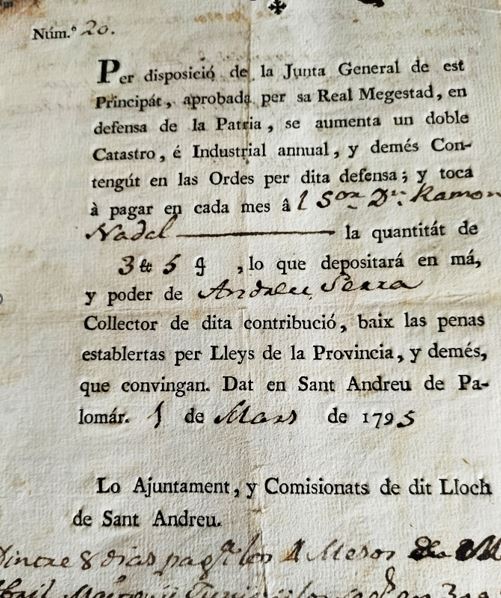 Núm.º 20.
Per disposició de la Junta General de est
Principát, aprobada per sa Real Megestad, en
defensa de la Patria, se aumenta un doble
Catastro, é Industrial annual, y demés Con-
tengút en las Ordes per dita defensa; y toca
à pagar en cada mes â l Sor. Dn. Ramon
Nadal la quantitát de
3 5 , lo que depositará en má,
y poder de Andreu Serra
Collector de dita contribució, baix las penas
establertas per Lleys de la Provincia, y demés,
que convingan. Dat en Sant Andreu de Pa-
lomár. 1 de Mars de 1795
Lo Ajuntament, y Comisionats de dit Lloch
de Sant Andreu.
Dintre 8 dias los Mesos